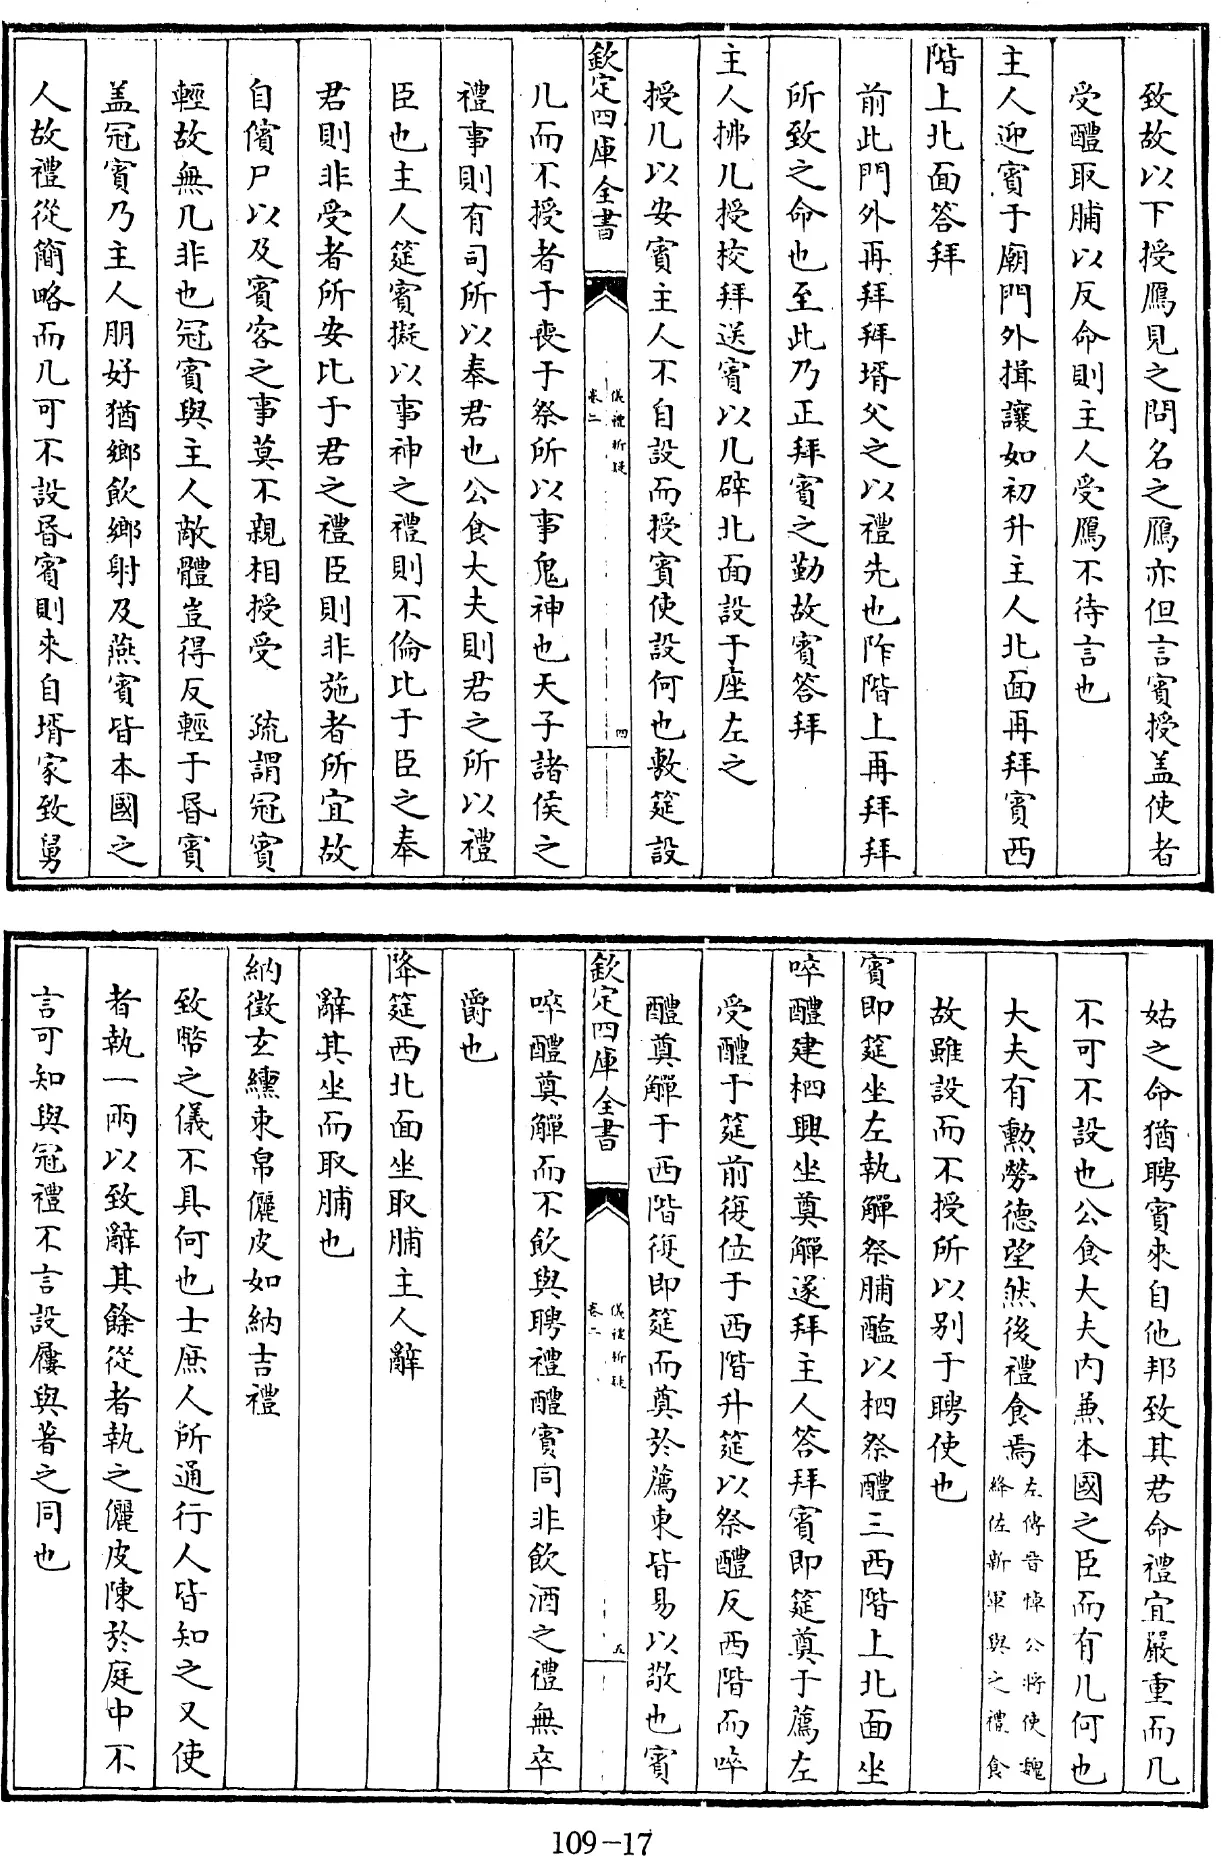 致故以下授鴈見之問名之鴈亦但言賓授盖使者
受醴取脯以反命則主人受鴈不待言也
主人迎賓于廟門外揖讓如初升主人北面再拜賓西
階上北面答拜
前此門外再拜拜壻父之以禮先也阼階上再拜拜
所致之命也至此乃正拜賓之勤故賓答拜
主人拂几授校拜送賓以几辟北面設于座左之
授几以安賓主人不自設而授賓使設何也敷筵設
欽定四庫全書
儀禮析疑
卷二
四
几而不授者于喪于祭所以事鬼神也天子諸侯之
禮事則有司所以奉君也公食大夫則君之所以禮
臣也主人筵賓擬以事神之禮則不倫比于臣之奉
君則非受者所安比于君之禮臣則非施者所宜故
自儐尸以及賓客之事莫不親相授受　疏謂冠賓
輕故無几非也冠賓與主人敵體豈得反輕于昏賓
盖冠賓乃主人朋好猶鄉飲鄉射及燕賓皆本國之
人故禮從簡略而几可不設昏賓則來自壻家致舅
姑之命猶聘賓來自他邦致其君命禮宜嚴重而几
不可不設也公食大夫内兼本國之臣而有几何也
大夫有勲勞德望然後禮食焉左傳晉悼公將使魏絳佐新軍與之禮食
故雖設而不授所以别于聘使也
賓即筵坐左執觶祭脯醢以柶祭醴三西階上北面坐
啐醴建柶興坐奠觶遂拜主人答拜賓即筵奠于薦左
受醴于筵前復位于西階升筵以祭醴反西階而啐
醴奠觶于西階復即筵而奠於薦東皆易以敬也賓
欽定四庫全書
儀禮析疑
卷二
五
啐醴奠觶而不飲與聘禮醴賓同非飲酒之禮無卒
爵也
降筵西北面坐取脯主人辭
辭其坐而取脯也
納徵玄纁束帛儷皮如納吉禮
致幣之儀不具何也士庶人所通行人皆知之又使
者執一兩以致辭其餘從者執之儷皮陳於庭中不
言可知與冠禮不言設屨與著之同也
109-17